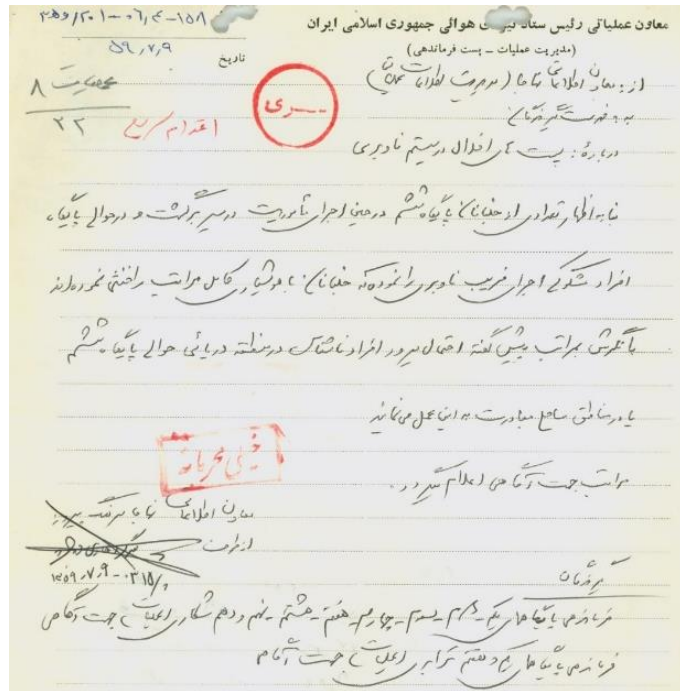 ۳۵۵/۲۰۱-۰۶,۴-۱۵۸
معاون عملیاتی رئیس ستاد نیروی هوائی جمهوری اسلامی ایران
(مدیریت عملیات ــ پست فرماندهی)
تاریخ ۵۹,۷,۹
از: معاون اطلاعاتی نهاجا (مدیریت اطلاعات عملیات)
عملیات ۸
۲۲
سری
اقدام سریع
به: فهرست گیرندگان
درباره: پست های اخلال در سیستم ناوبری
بنا به اظهار تعدادی از خلبانان پایگاه ششم در حین اجرای مأموریت در مسیر برگشت و در حوالی پایگاه
افراد مشکوکی اجرای فریب ناوبری را نموده که خلبانان با هوشیاری کامل مراتب را خنثی نموده اند
با نگرش بمراتب پیش گفته احتمال میرود افراد ناشناس در منطقه دریائی حوالی پایگاه ششم
یا در مناطق ساحلی مبادرت به این عمل می نمایند
مراتب جهت آگاهی اعلام میگردد.
خیلی محرمانه
معاون اطلاعاتی نهاجا سرهنگ
از طرف
۱۳۵۹,۷,۹-۰۳۱۵
گیرندگان
فرماندهی پایگاه های یکم ـ دوم ـ سوم ـ چهارم ـ هفتم ـ هشتم ـ نهم و دهم شکاری (عملیات) جهت آگاهی
فرماندهی پایگاه های یکم و هفتم ترابری (عملیات) جهت آگاهی